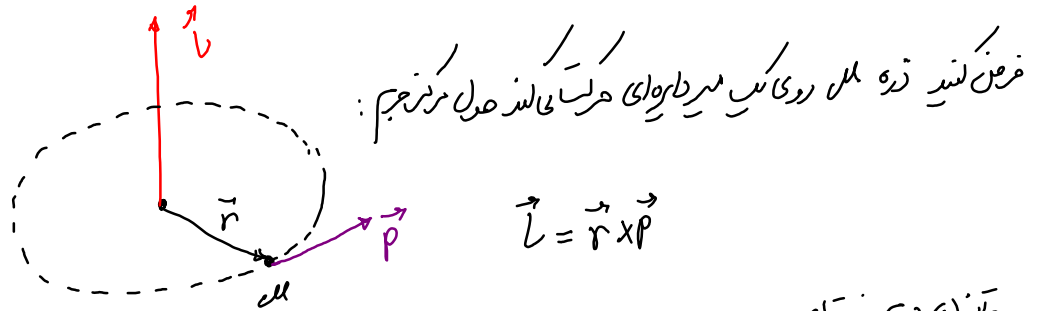 فرض کنید ذره μ روی یک مسیر دایره‌ای حرکت می‌کند حول مرکز جرم :
L⃗
r⃗
P⃗
μ
L⃗ = r⃗ × P⃗